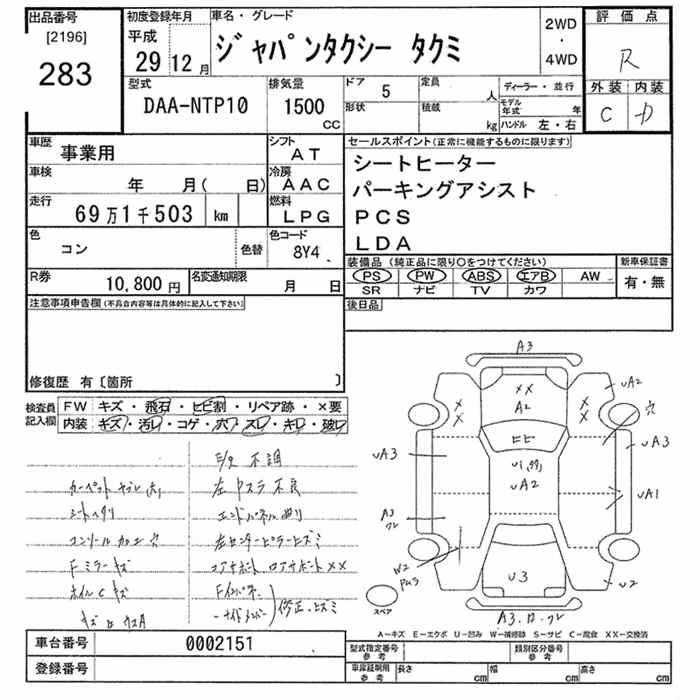 出品番号
[2196]
283
初度登録年月
平成
29年12月
車名・グレード
ジャパンタクシー タクミ
2WD
・
4WD
評価点
R
外装 内装
C D
型式
DAA-NTP10
排気量
1500
CC
ドア
5
形状
定員
人
積載
kg
ディーラー・並行
モデル年式 年
ハンドル 左・右
車歴
事業用
シフト
AT
車検
年 月( 日)
冷房
AAC
走行
69万1千503 km
燃料
LPG
色
コン
色替
色コード
8Y4
R券
10,800円
名変通知期限
月 日
セールスポイント(正常に機能するものに限ります)
シートヒーター
パーキングアシスト
PCS
LDA
装備品 (純正品に限り○をつけてください)
PS PW ABS エアB AW
SR ナビ TV カワ
新車保証書
有・無
後日品
注意事項申告欄(不具合内容等は具体的に記入して下さい)
修復歴 有〔箇所 〕
検査員
記入欄
FW キズ・飛石・ヒビ割・リペア跡・×要
内装 キズ・汚レ・コゲ・穴・スレ・キレ・破レ
E/g 不調
カーペットヤブレ 大
左ドラスラ不良
シートヘタリ
エンドパネル曲り
コンソールカケ 穴
左センターピラーヒズミ
Fミラーキズ
コアサポート ロアサポート××
ホイルCキズ
Fインパネ
サイドメンバー
修正、ヒズミ
A3
UA2
××
A2
××
穴
UA3
UA3
UA2
UA1
A3
W2
U3
U2
A3.
スペア
A－キズ E－エクボ U－凹み W－補修跡 S－サビ C－腐食 XX－交換済
車台番号
0002151
登録番号
型式指定番号
参考
類別区分番号
参考
車庫証明用
参考
長さ cm
幅 cm
高さ cm